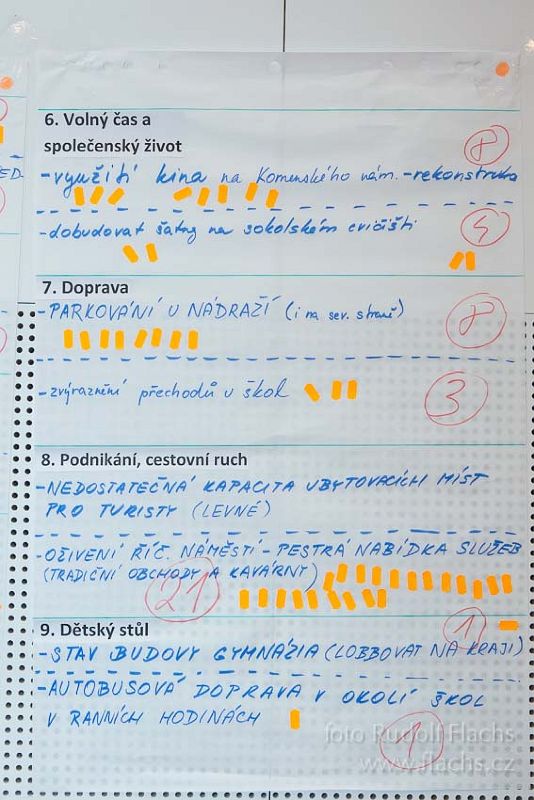 6. Volný čas a
společenský život
8
-využití kina na Komenského nám. -rekonstrukce
-dobudovat šatny na sokolském cvičišti
4
7. Doprava
-PARKOVÁNÍ U NÁDRAŽÍ (i na sev. straně)
8
-zvýraznění přechodů u škol
3
8. Podnikání, cestovní ruch
-NEDOSTATEČNÁ KAPACITA UBYTOVACÍCH MÍST
PRO TURISTY (LEVNÉ)
-OŽIVENÍ ŘÍČ. NÁMĚSTÍ - PESTRÁ NABÍDKA SLUŽEB
(TRADIČNÍ OBCHODY A KAVÁRNY)
21
9. Dětský stůl
1
-STAV BUDOVY GYMNÁZIA (LOBBOVAT NA KRAJI)
-AUTOBUSOVÁ DOPRAVA V OKOLÍ ŠKOL
V RANNÍCH HODINÁCH
1
foto Rudolf Flachs
www.flachs.cz